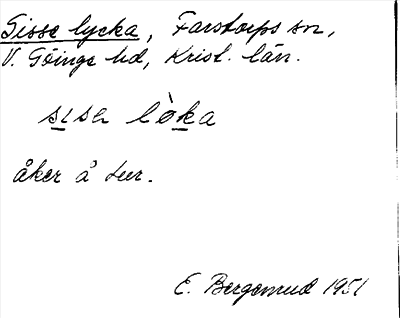 Sisse lycka, Farstorps sn,
V. Göinge hd, Krist. län.
sisən lòka
åker å
E. Bergenrud 1951